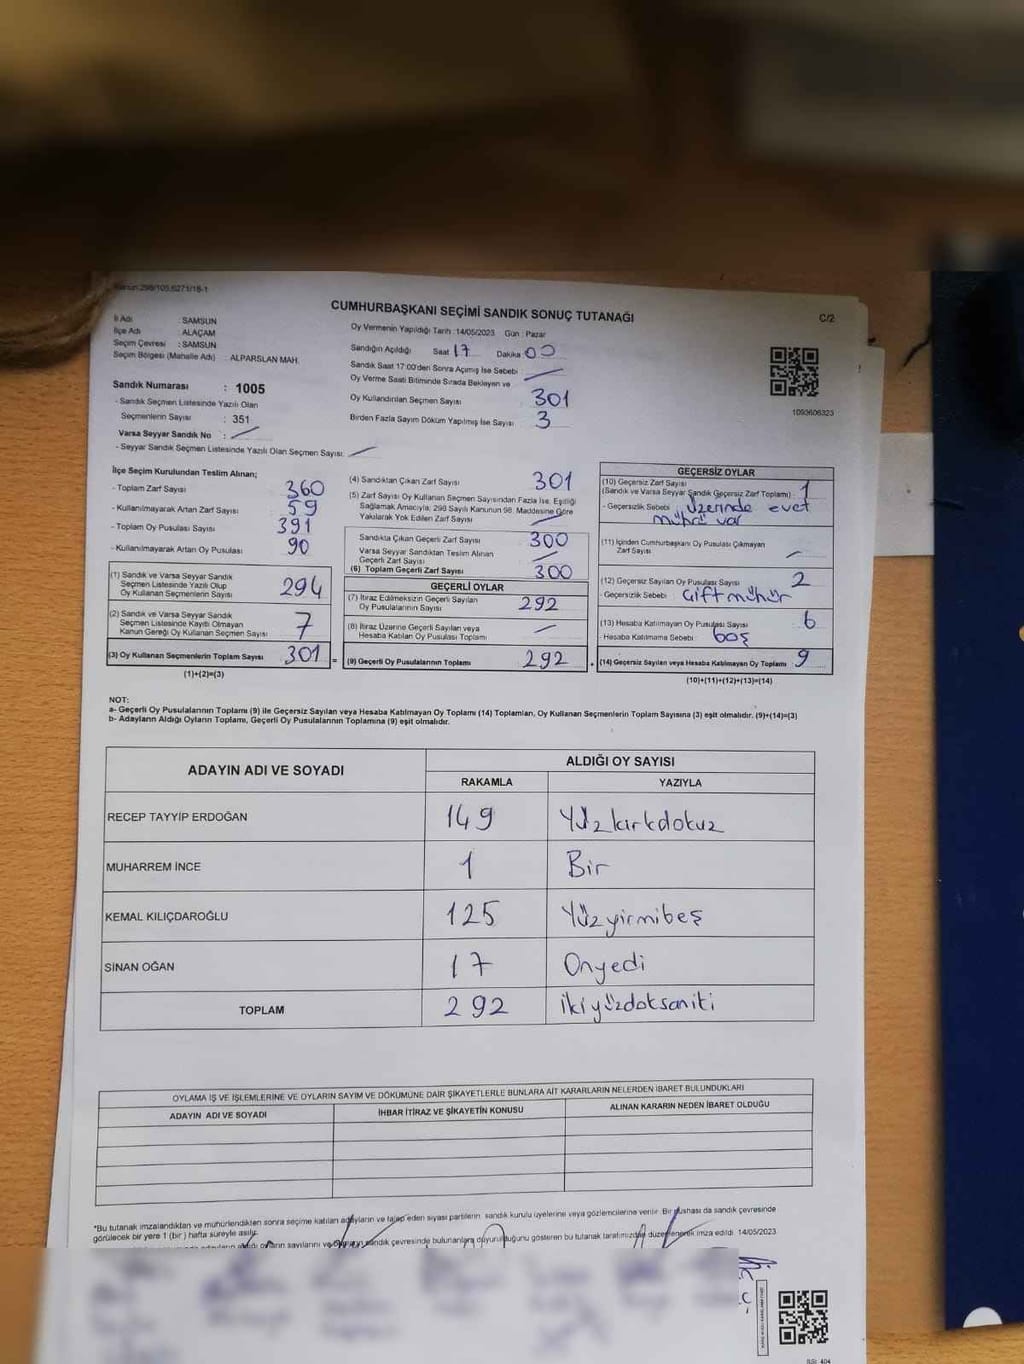 Kanun:298/105,6271/18-1
CUMHURBAŞKANI SEÇİMİ SANDIK SONUÇ TUTANAĞI
C/2
İl Adı : SAMSUN
İlçe Adı : ALAÇAM
Seçim Çevresi : SAMSUN
Seçim Bölgesi (Mahalle Adı) : ALPARSLAN MAH.
Sandık Numarası : 1005
- Sandık Seçmen Listesinde Yazılı Olan
Seçmenlerin Sayısı : 351
Varsa Seyyar Sandık No :
- Seyyar Sandık Seçmen Listesinde Yazılı Olan Seçmen Sayısı:
Oy Vermenin Yapıldığı Tarih : 14/05/2023 Gün : Pazar
Sandığın Açıldığı Saat 17 Dakika 00
Sandık Saat 17:00'den Sonra Açılmış İse Sebebi :
Oy Verme Saati Bitiminde Sırada Bekleyen ve
Oy Kullandırılan Seçmen Sayısı 301
Birden Fazla Sayım Döküm Yapılmış İse Sayısı 3
1093606323
İlçe Seçim Kurulundan Teslim Alınan;
- Toplam Zarf Sayısı 360
- Kullanılmayarak Artan Zarf Sayısı 59
- Toplam Oy Pusulası Sayısı 391
- Kullanılmayarak Artan Oy Pusulası 90
(1) Sandık ve Varsa Seyyar Sandık
Seçmen Listesinde Yazılı Olup
Oy Kullanan Seçmenlerin Sayısı 294
(2) Sandık ve Varsa Seyyar Sandık
Seçmen Listesinde Kayıtlı Olmayan
Kanun Gereği Oy Kullanan Seçmen Sayısı 7
(3) Oy Kullanan Seçmenlerin Toplam Sayısı 301
(1)+(2)=(3)
(4) Sandıktan Çıkan Zarf Sayısı 301
(5) Zarf Sayısı Oy Kullanan Seçmen Sayısından Fazla İse, Eşitliği
Sağlamak Amacıyla, 298 Sayılı Kanunun 98. Maddesine Göre
Yakılarak Yok Edilen Zarf Sayısı
Sandıkta Çıkan Geçerli Zarf Sayısı 300
Varsa Seyyar Sandıktan Teslim Alınan
Geçerli Zarf Sayısı
(6) Toplam Geçerli Zarf Sayısı 300
GEÇERLİ OYLAR
(7) İtiraz Edilmeksizin Geçerli Sayılan
Oy Pusulalarının Sayısı 292
(8) İtiraz Üzerine Geçerli Sayılan veya
Hesaba Katılan Oy Pusulası Toplamı
= (9) Geçerli Oy Pusulalarının Toplamı 292
GEÇERSİZ OYLAR
(10) Geçersiz Zarf Sayısı
(Sandık ve Varsa Seyyar Sandık Geçersiz Zarf Toplamı) : 1
- Geçersizlik Sebebi : üzerinde evet
mührü var
(11) İçinden Cumhurbaşkanı Oy Pusulası Çıkmayan
Zarf Sayısı
(12) Geçersiz Sayılan Oy Pusulası Sayısı 2
- Geçersizlik Sebebi : Çift mühür
(13) Hesaba Katılmayan Oy Pusulası Sayısı 6
- Hesaba Katılmama Sebebi : boş
+ (14) Geçersiz Sayılan veya Hesaba Katılmayan Oy Toplamı 9
(10)+(11)+(12)+(13)=(14)
NOT:
a- Geçerli Oy Pusulalarının Toplamı (9) ile Geçersiz Sayılan veya Hesaba Katılmayan Oy Toplamı (14) Toplamları, Oy Kullanan Seçmenlerin Toplam Sayısına (3) eşit olmalıdır. (9)+(14)=(3)
b- Adayların Aldığı Oyların Toplamı, Geçerli Oy Pusulalarının Toplamına (9) eşit olmalıdır.
ADAYIN ADI VE SOYADI
ALDIĞI OY SAYISI
RAKAMLA YAZIYLA
RECEP TAYYİP ERDOĞAN 149 Yüzkırkdokuz
MUHARREM İNCE 1 Bir
KEMAL KILIÇDAROĞLU 125 Yüzyirmibeş
SİNAN OĞAN 17 Onyedi
TOPLAM 292 ikiyüzdoksaniki
OYLAMA İŞ VE İŞLEMLERİNE VE OYLARIN SAYIM VE DÖKÜMÜNE DAİR ŞİKAYETLERLE BUNLARA AİT KARARLARIN NELERDEN İBARET BULUNDUKLARI
ADAYIN ADI VE SOYADI
İHBAR İTİRAZ VE ŞİKAYETİN KONUSU
ALINAN KARARIN NEDEN İBARET OLDUĞU
*Bu tutanak imzalandıktan ve mühürlendikten sonra seçime katılan adayların ve talep eden siyasi partilerin sandık kurulu üyelerine veya gözlemcilerine verilir. Bir nüshası da sandık çevresinde
görülecek bir yere 1 (bir) hafta süreyle asılır.
oyların sayılarını ve sandık çevresinde bulunanlara duyurulduğunu gösteren bu tutanak tarafımızdan düzenlenerek imza edildi. 14/05/2023